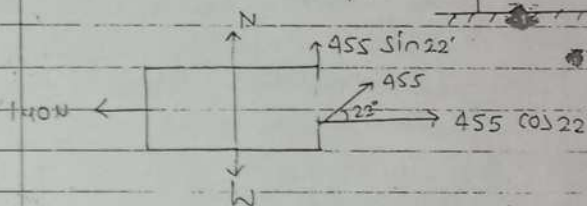 N
455 Sin 22°
455
140N
22°
455 cos 22
W